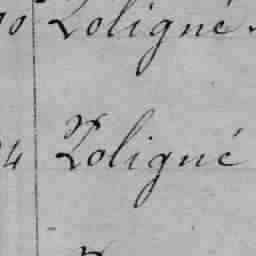 0 Loligné
4 Loligné